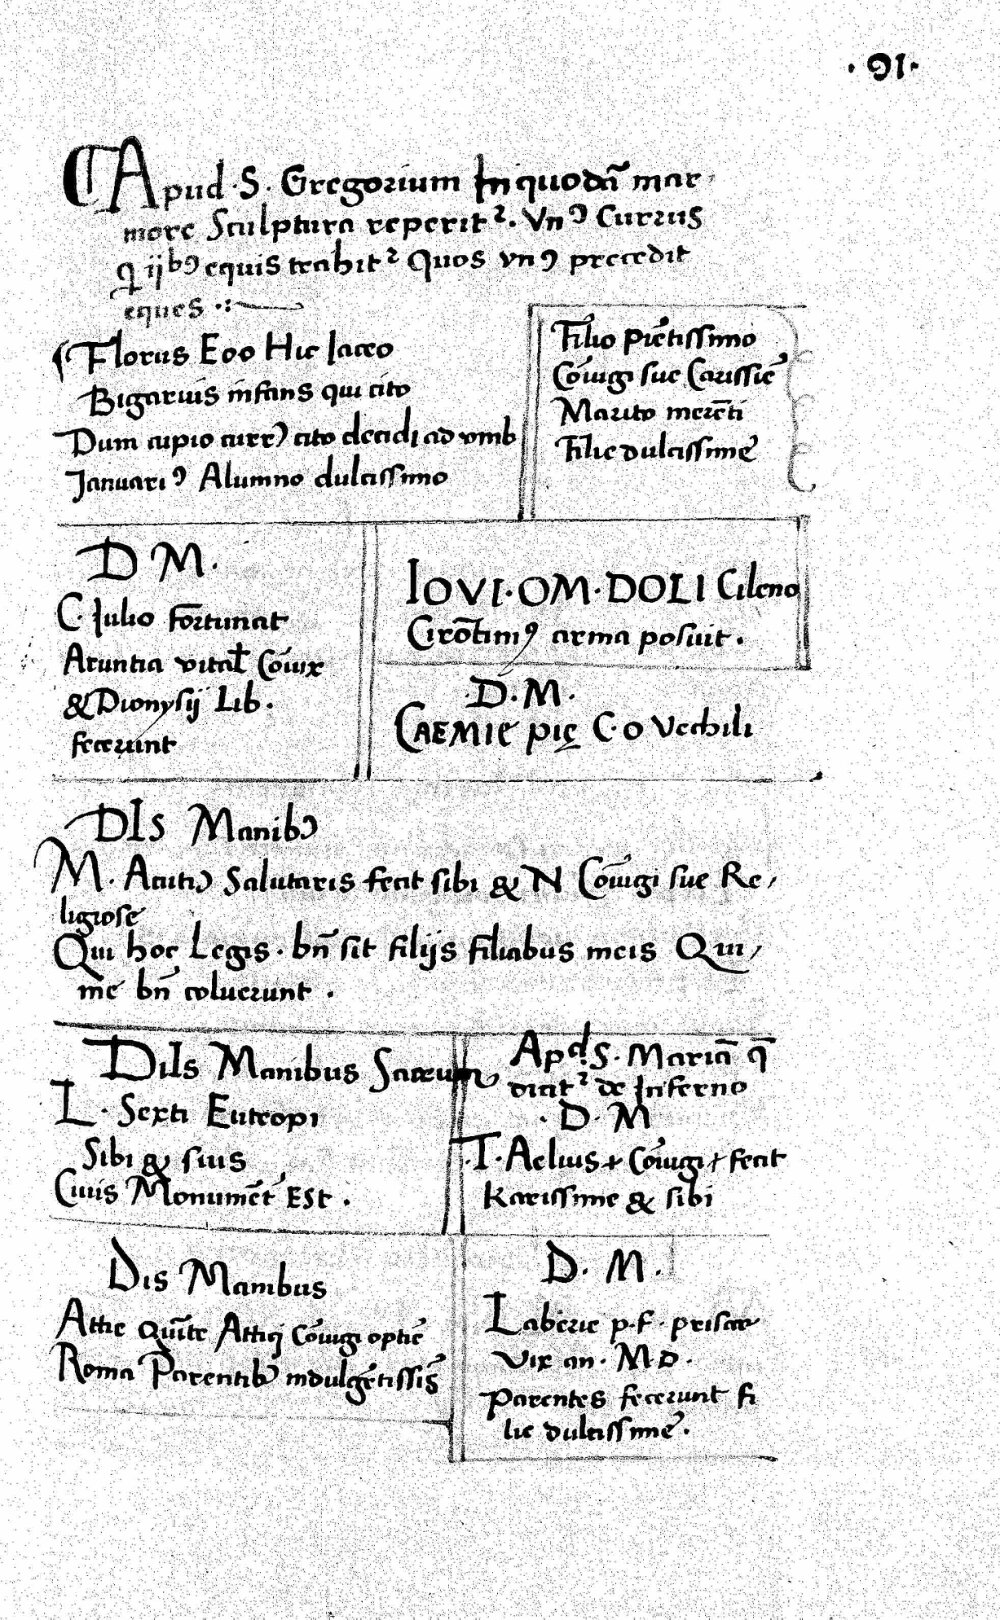 · 91 ·
Apud · S · Gregorium In quodā mar
more Sculptura reperitᷣ. Vnꝰ Currus
q̨ ijbꝰ equis trahitᷣ Quos vnꝰ precedit
eques ·:
Florus Eoo Hic Iaceo
Bigarius infans qui cito
Dum cupio currꝰ cito decidi ad vmb
Ianuariꝰ Alumno dulcissimo
Filio piētissimo
Cōiugi sue Carissīe
Marito merēti
Filie dulcissime
D M ·
C · Iulio Fōrtunat
Aruntia vitaƚ Cōiux
& Dionysij Lib .
fecerunt
IOVI · OM · DOLI Cileno
Cirōtiniꝰ arma posuit .
· D · M ·
CAEMIE pię C · O Vechili
DIS Manibꝰ
M · Acutiꝰ Salutaris fecit sibi & N Cōiugi sue Re
ligiose
Qui hoc Legis . bn̄ sit filijs filiabus meis Qui
me bn̄ coluerunt .
DiIs Manibus Sacrum
L · Sexti Eutropi
Sibi & suis
Cuius Monumēt ESt .
Apđ S · Mariā q̄
dicitᷣ de Inferno
· D · M
· T · Aelius + Cōiugi + fecit
Karissime & sibi
Dis Manibus
Attie Quīte Attiq Cōiugi optīe
Roma Parentibꝰ indulgētissis̄
D · M ·
Laberie p · f · prisce
Vix an · M D ·
parentes fecerunt fi
lie dulcissime .